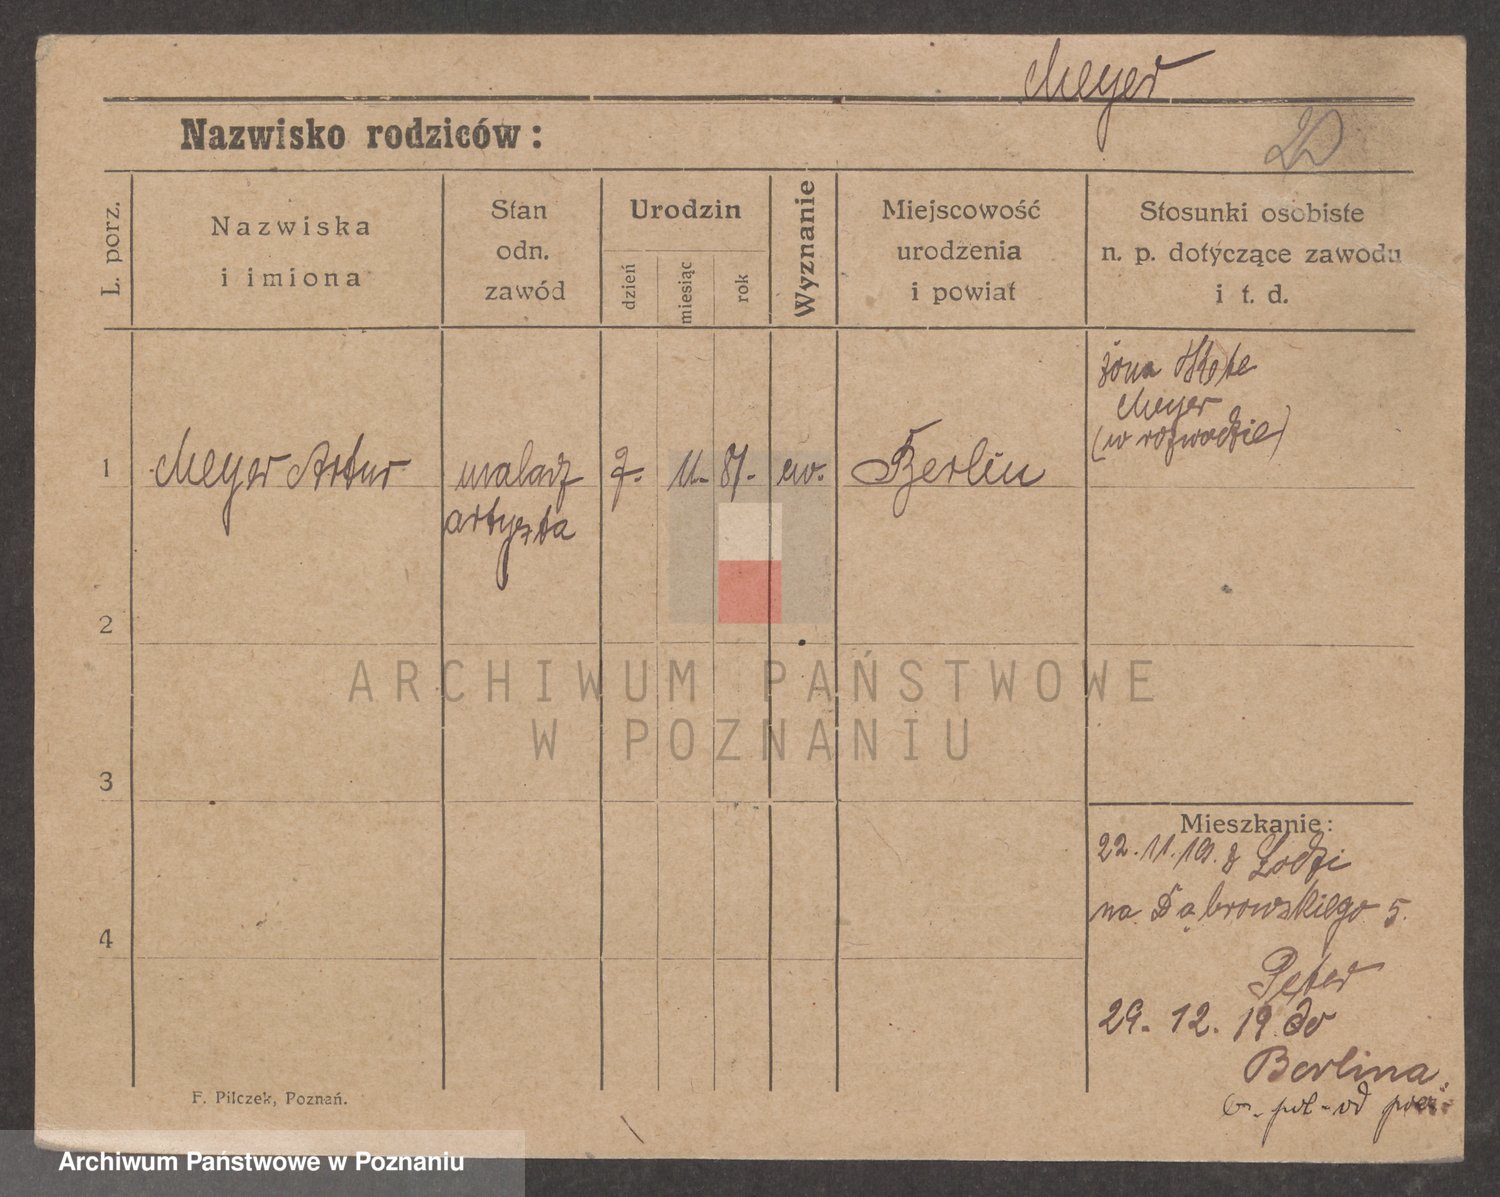 Meyer
Nazwisko rodziców:
L. porz.
Nazwiska
i imiona
Stan
odn.
zawód
Urodzin
dzień
miesiąc
rok
Wyznanie
Miejscowość
urodzenia
i powiat
Stosunki osobiste
n. p. dotyczące zawodu
i t. d.
żona
Meyer
(w rozwodzie)
1
Meyer Artur
malarz
artysta
7.
11.
81.
ew.
Berlin
2
3
4
ARCHIWUM PAŃSTWOWE
W POZNANIU
Mieszkanie:
22. 11. 19. z Łodzi
na Dąbrowskiego 5.
Peter
29. 12. 19 do
Berlina.
F. Pilczek, Poznań.
Archiwum Państwowe w Poznaniu